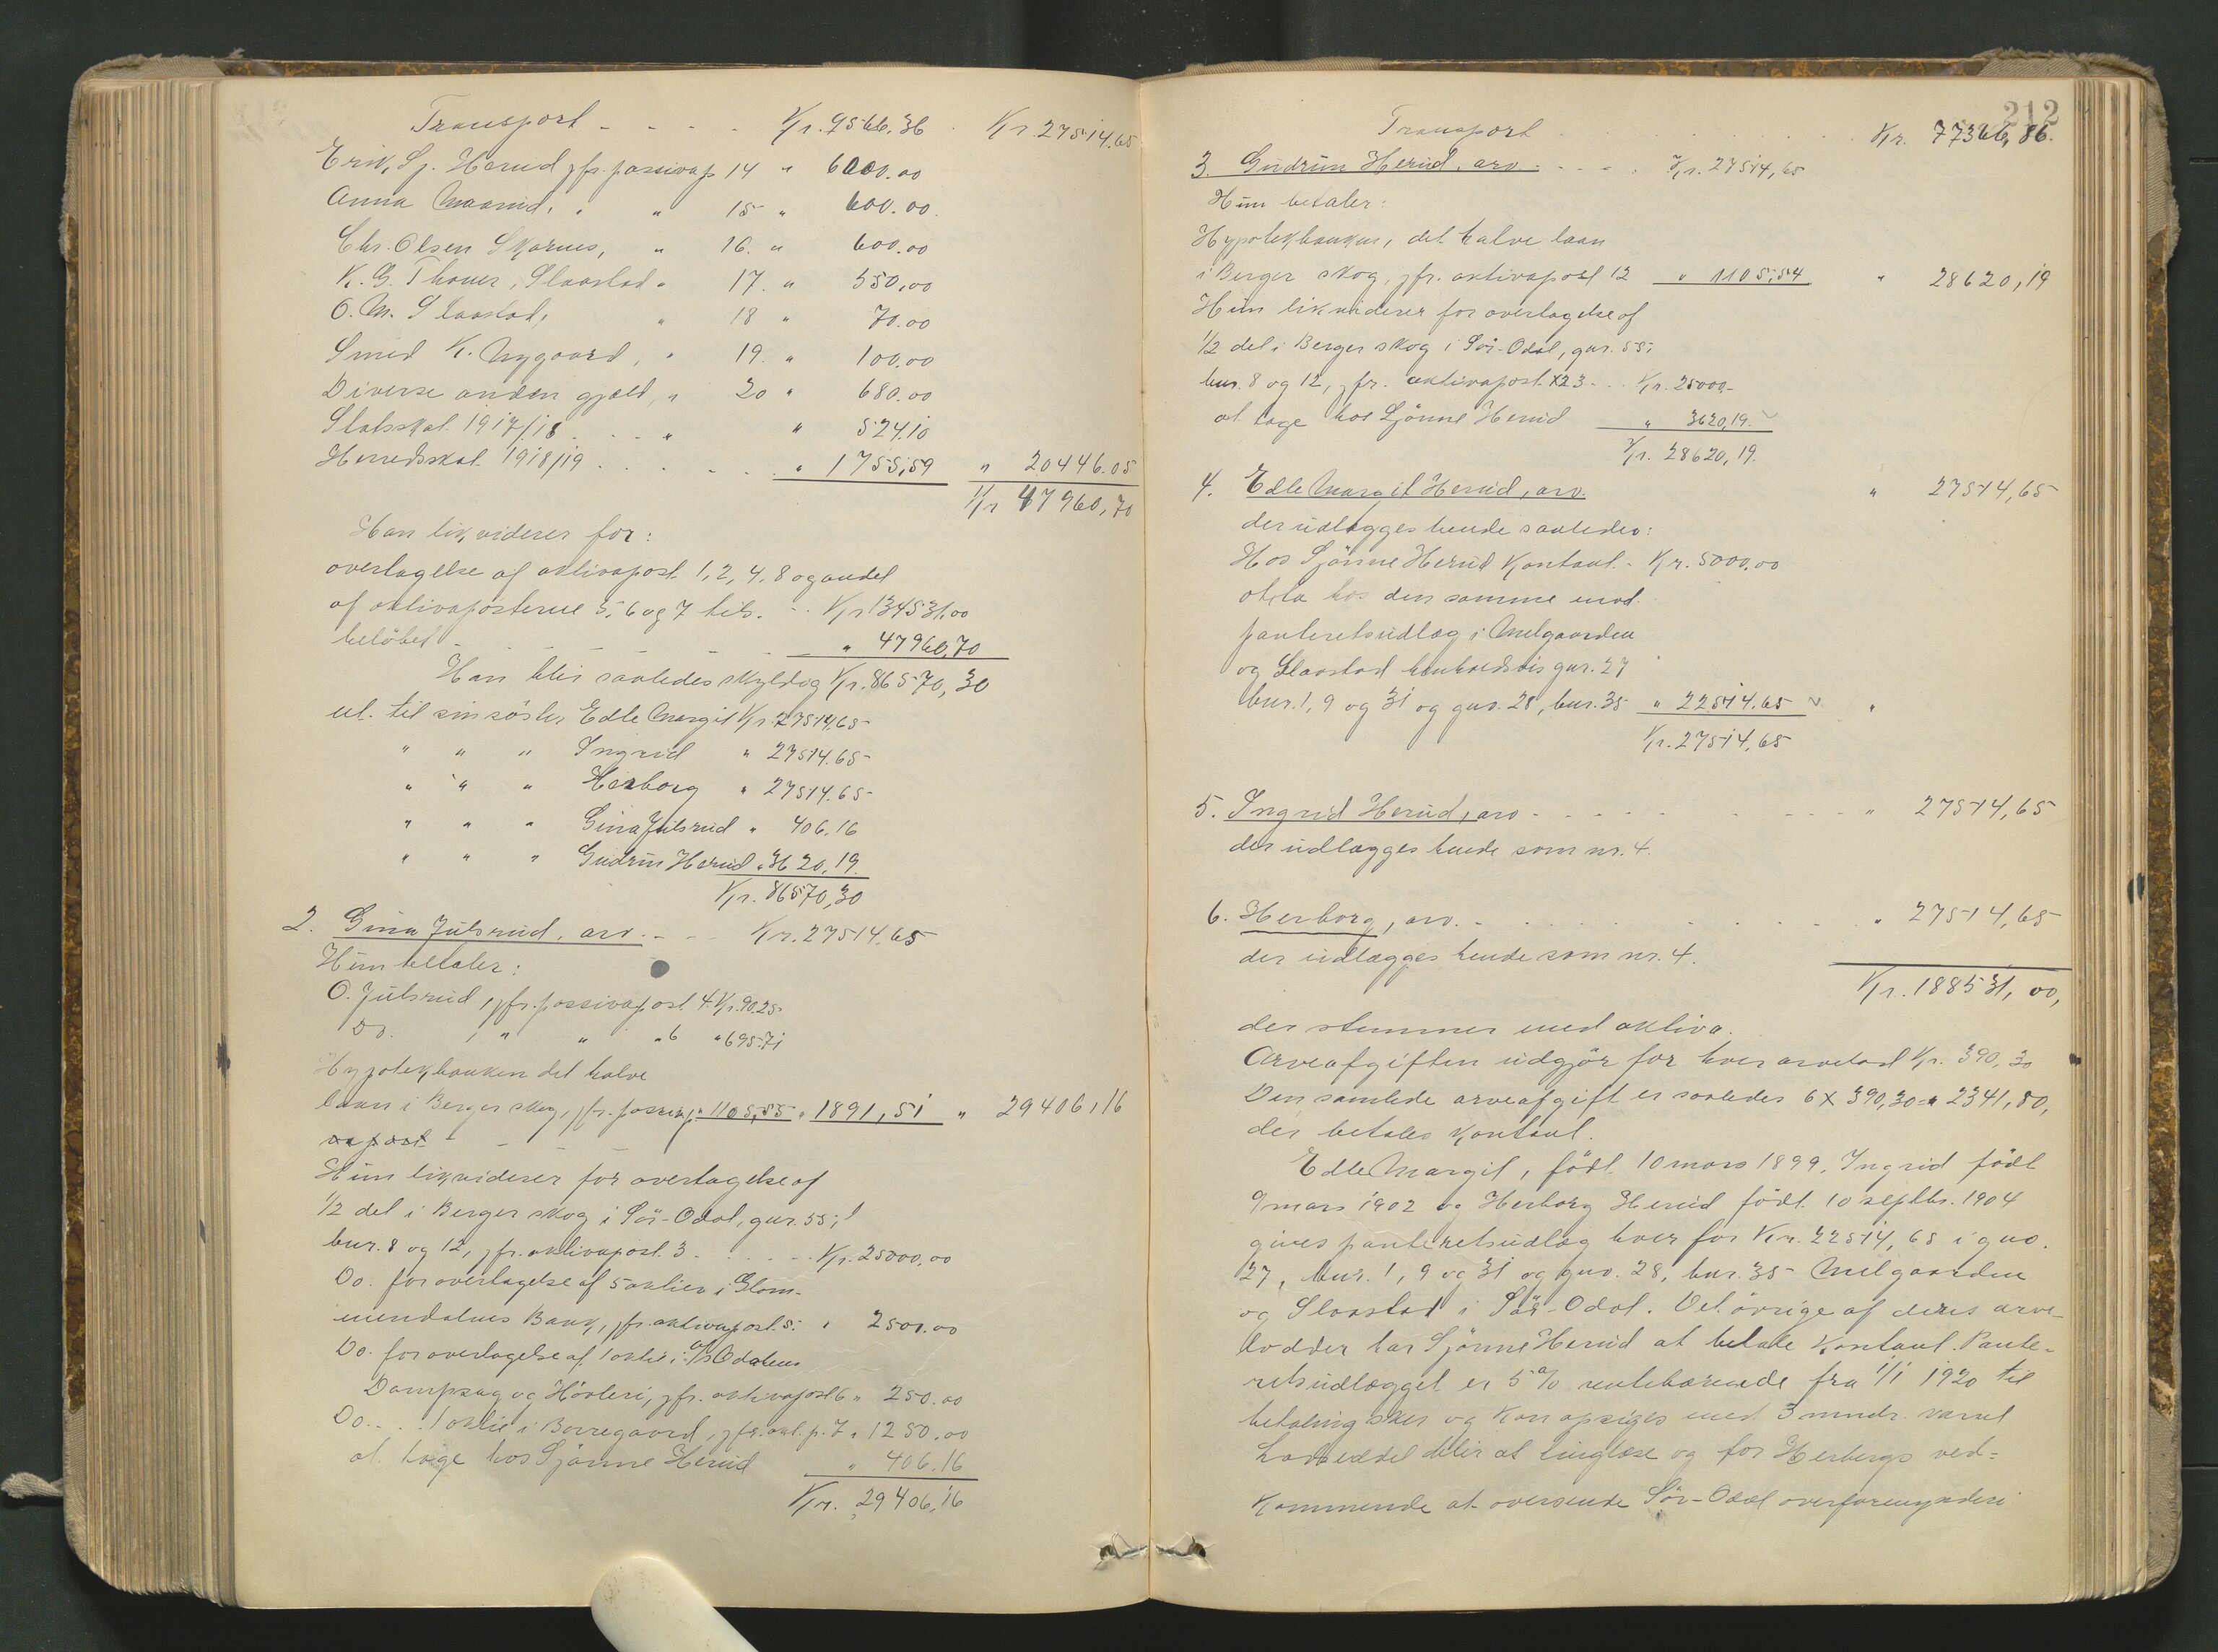 Transport - - - - Kr. 9566,36 Kr. 27514.65
Erik Sj. Herud jfr. passivap 14 " 6000.00
Anna Maarud, " " 15 " 600.00
Chr. Olsen Skarnes, " 16. " 600.00
K. G. Thoner, Slaastad " 17. " 550,00
O. M. Slaastad, " 18 " 70.00
Smed K. Nygaard, " 19. " 100.00
Diverse anden gjæld, " 20 " 680.00
Statsskat 1917/18 . . . " " 524.10
Herredsskat 1918/19 . . . - - . . " 1755,59 " 20446.05
Kr 47960,70
Han likviderer for:
overtagelse af aktivapost 1, 2, 4, 8 og andel
af aktivaposterne 5, 6 og 7 tils. - - Kr 134531,00
beløbet - - - - - - " 47960.70
Han blir saaledes skyldig Kr. 86570,30
ut. til sin søster Edle Margit Kr. 27514,65
" " " Ingrid " 27514.65
" " " Herborg " 27514.65
" " " Gina Julsrud " 406.16
" " " Gudrun Herud " 3620,19.
Kr. 86570,30
2. Gina Julsrud, arv. - - - Kr. 27514.65
Hun betaler:
O. Julsrud, jfr. passivapost 4 Kr. 90.25
Do. , " " " 6 " 695.71
Hypotekbanken det halve
laan i Berger skog, jfr. " 1105,55 " 1891,51 " 29406,16
Hun likviderer for overtagelse af
1/2 del i Berger skog i Sør-Odal, gnr. 55,
bnr. 8 og 12, jfr. aktivapost 3 . . . . . Kr. 25000,00
Do. for overtagelse af 5 aktier i Glom-
mendalens Bank, jfr. aktivapost 5. " 2500.00
Do. for overtagelse af 1 aktie i A/S Odalens
Dampsag og Høvleri, jfr. aktivapost 6 " 250.00
Do. . . 1 aktie i Borregaard, jfr. akt. p. 7 " 1250.00
at tage hos Sjønne Herud " 406.16
Kr. 29406,16
212
Transport . . . . . . . Kr. 77366,86.
3. Gudrun Herud, arv. - - - . Kr. 27514,65
Hun betaler:
Hypotekbanken, det halve laan
i Berger skog, jfr. aktivapost 12 " 1105,54 " 28620,19
Hun likviderer for overtagelse af
1/2 del i Berger skog i Sør-Odal, gnr. 55,
bnr. 8 og 12, jfr. aktivapost 3 - . Kr. 25000,-
at tage hos Sjønne Herud " 3620,19.
Kr. 28620,19.
4. Edle Margit Herud, arv. " 27514,65
der udlægges hende saaledes:
Hos Sjønne Herud kontant - Kr. 5000.00
at ta hos den samme mod
panteretsudlæg i Melgaarden
og Slaastad henholdsvis gnr. 27
bnr. 1, 9 og 31 og gnr. 28, bnr. 35 " 22514.65 "
Kr. 27514,65
5. Ingrid Herud, arv - - - - - - - - - " 27514,65
der udlægges hende som nr. 4.
6. Herborg, arv. - . . . . . . . . " 27514,65
der udlægges hende som nr. 4.
Kr. 188531,00,
der stemmer med aktiva.
Arveafgiften udgjør for hver arvelod Kr. 390,30
Den samlede arveafgift er saaledes 6 x 390,30 = " 2341,80,
der betales kontant.
Edle Margit, født 10 mars 1899, Ingrid født
9 mars 1902 og Herborg Herud født 10 septbr. 1904
gives panteretsudlæg hver for Kr. 22514,65 i gno.
27, bnr. 1, 9 og 31 og gno. 28, bnr. 35 Melgaarden
og Slaastad i Sør-Odal. Det øvrige af deres arve-
lodder har Sjønne Herud at betale kontant. Pante-
retsudlægget er 5 % rentebærende fra 1/1 1920 til
betaling sker og kan opsiges med 3 mndr. varsel
Lodseddel blir at tinglæse og for Herborgs ved-
kommende at oversende Sør-Odal overformynderi